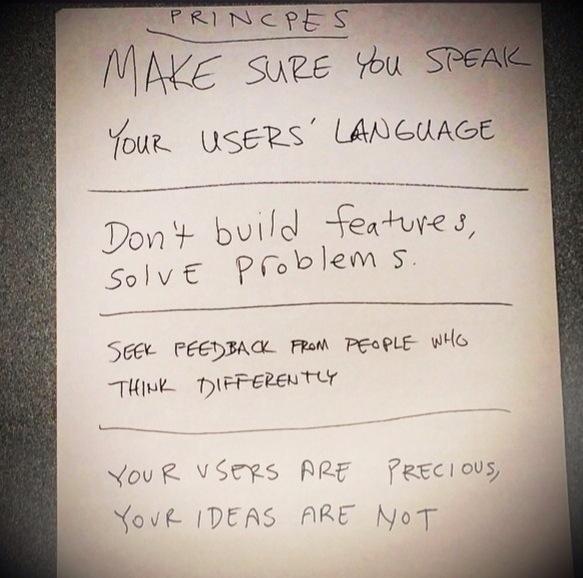 PRINCPES
MAKE SURE YOU SPEAK
YOUR USERS' LANGUAGE
Don't build features,
SOLVE Problems.
SEEK FEEDBACK FROM PEOPLE WHO
THINK DIFFERENTLY
YOUR USERS ARE PRECIOUS,
YOUR IDEAS ARE NOT